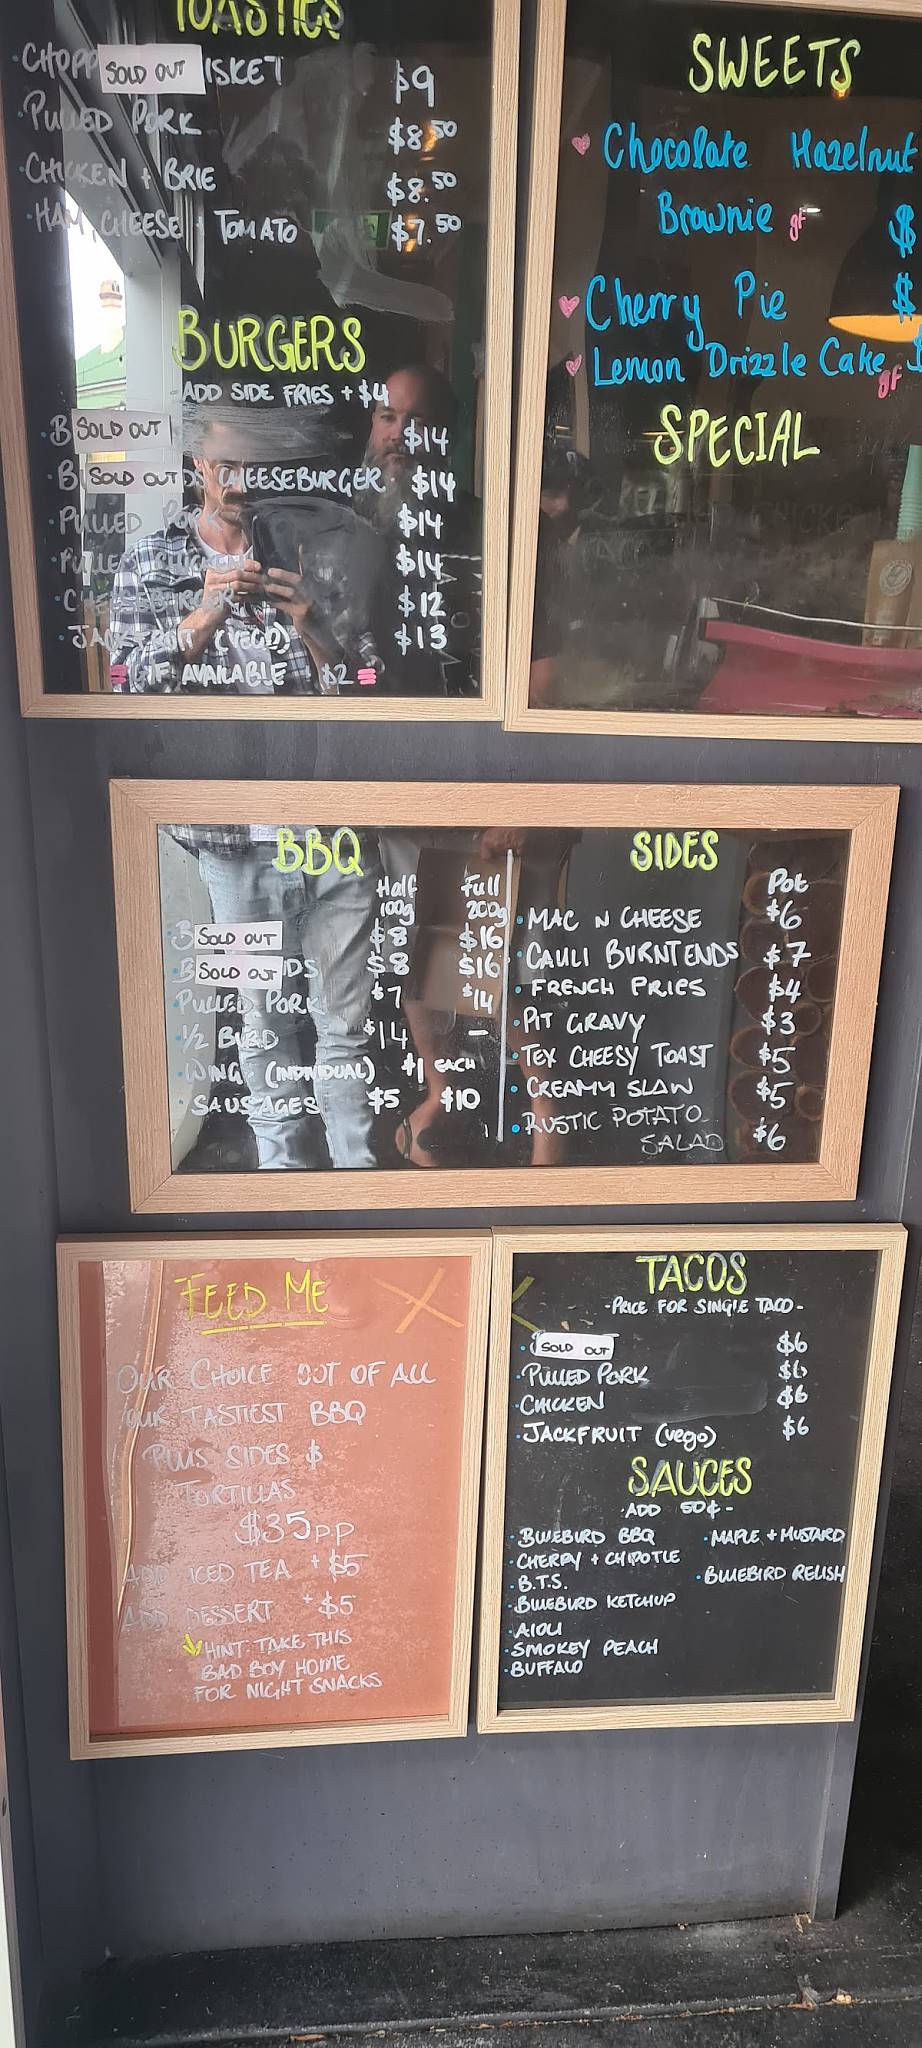 TOASTIES
CHOPP SOLD OUT ISKET $9
PULLED PORK $8.50
CHICKEN + BRIE $8.50
HAM, CHEESE + TOMATO $7.50
BURGERS
ADD SIDE FRIES + $4
B SOLD OUT $14
B SOLD OUT DS CHEESEBURGER $14
PULLED PORK $14
PULLED CHICKEN $14
CHEESEBURGER $12
JACKFRUIT (VEGO) $13
G/F AVAILABLE $2
SWEETS
Chocolate Hazelnut
Brownie gf $
Cherry Pie $
Lemon Drizzle Cake gf $
SPECIAL
BBQ
Half Full
100g 200g
B SOLD OUT $8 $16
B SOLD OUT DS $8 $16
PULLED PORK $7 $14
1/2 BIRD $14 -
WING (INDIVIDUAL) $1 EACH
SAUSAGES $5 $10
SIDES
Pot
MAC N CHEESE $6
CAULI BURNTENDS $7
FRENCH FRIES $4
PIT GRAVY $3
TEX CHEESY TOAST $5
CREAMY SLAW $5
RUSTIC POTATO
SALAD $6
FEED ME
OUR CHOICE OUT OF ALL
OUR TASTIEST BBQ
PLUS SIDES &
TORTILLAS
$35pp
ADD ICED TEA + $5
ADD DESSERT + $5
HINT: TAKE THIS
BAD BOY HOME
FOR NIGHT SNACKS
TACOS
-PRICE FOR SINGLE TACO-
SOLD OUT $6
PULLED PORK $6
CHICKEN $6
JACKFRUIT (vego) $6
SAUCES
-ADD 50¢-
BLUEBIRD BBQ
CHERRY + CHIPOTLE
B.T.S.
BLUEBIRD KETCHUP
AIOLI
SMOKEY PEACH
BUFFALO
MAPLE + MUSTARD
BLUEBIRD RELISH